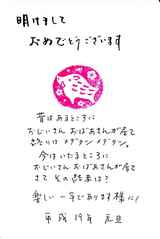 明けまして
おめでとうございます
昔はあるところに
おじいさん おばあさんが居て
終りは メデタシ メデタシ。
今はいたるところに
おじいさん おばあさんが居て
さて その結果は?
楽しい一年であります様に!
平成19年 元旦